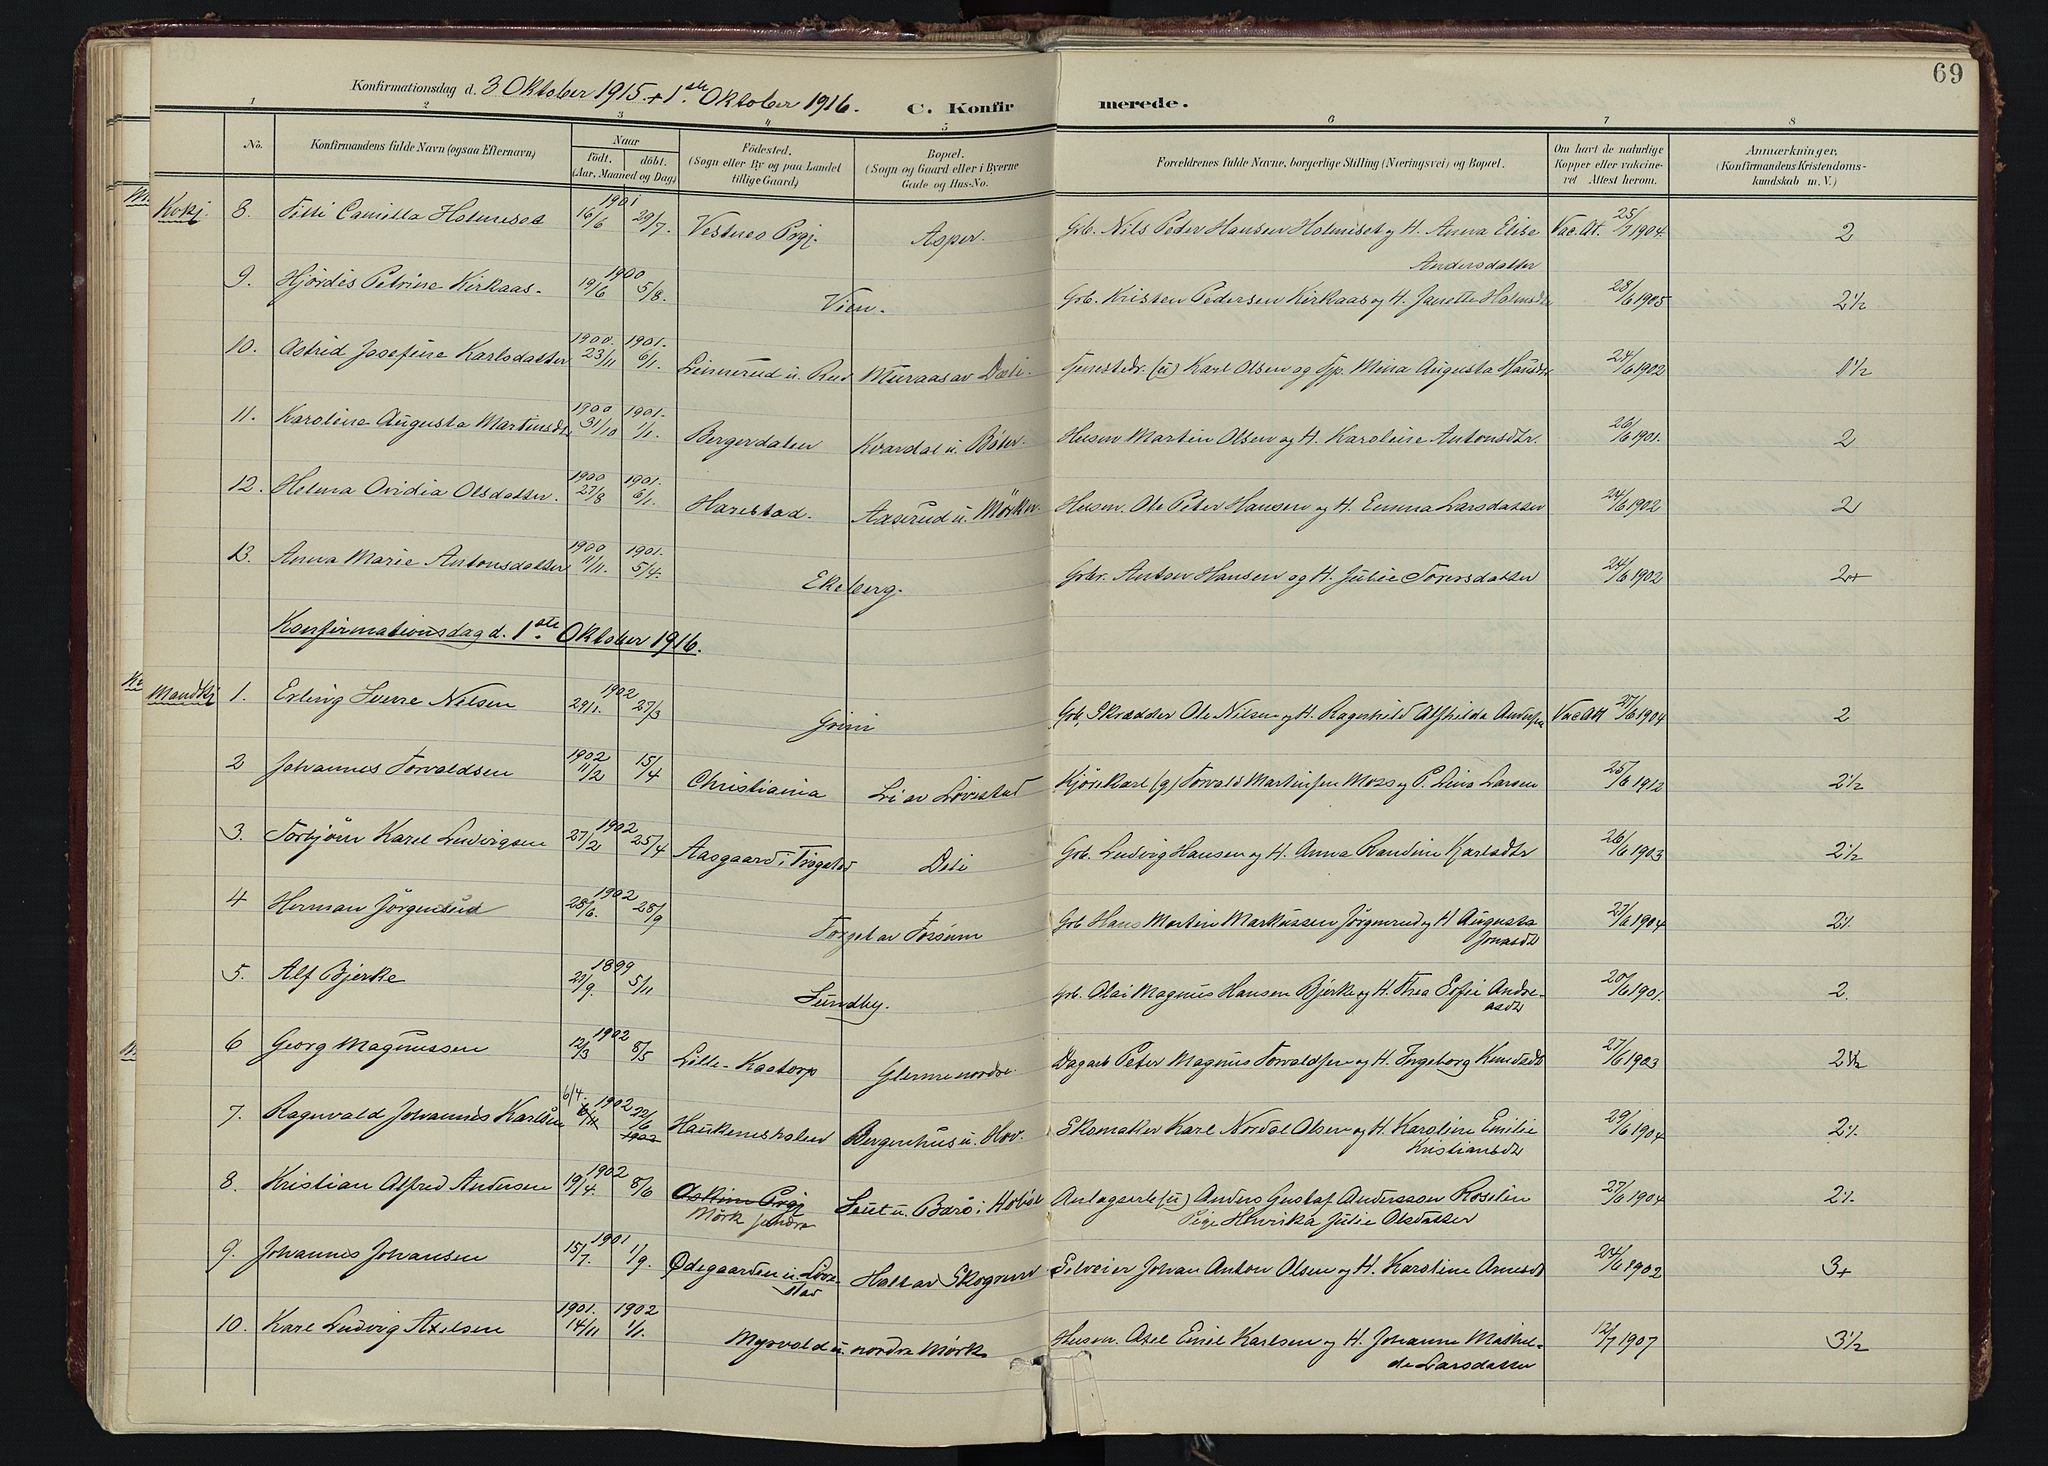 69
Konfirmationsdag d. 3 Oktober 1915 + 1ste Oktober 1916. C. Konfirmerede.
1 2 3 4 5 6 7 8
No. Konfirmandens fulde Navn (ogsaa Efternavn) Naar födt. döbt. (Aar, Maaned og Dag) Födested. (Sogn eller By og paa Landet tillige Gaard) Bopæl. (Sogn og Gaard eller i Byerne Gade og Hus-No. Forældrenes fulde Navne, borgerlige Stilling (Næringsvei) og Bopæl. Om havt de naturlige Kopper eller vakcineret Attest herom. Anmærkninger, (Konfirmandens Kristendomskundskab m. V.)
Kvkj. 8. Titti Camilla Holmeset 1901 16/6 29/7. Vestnes Prgj. Asper. Gb. Nils Peder Hansen Holmeset og H. Anna Elise Andersdatter Vac. At. 25/7 1904. 2
9. Hjördis Petrine Kirkaas. 1900 19/6 5/8. Vien. Gb. Kristen Pedersen Kirkaas og H. Janette Holmsdtr 28/6 1905 2 1/2
10. Astrid Josefine Karlsdatter 1900. 23/11 1901. 6/1. Linnerud u. Rud Muraas av Deli. Tjenestedr. (u) Karl Olsen og Tjp. Mina Augusta Hansdtr 24/6 1902 1 1/2
11. Karoline Augusta Martinsdtr 1900 31/10 1901. 1/1. Bergerdalen Kvardal u. Böler. Husm Martin Olsen og H. Karoline Antonsdtr. 26/6 1901. 2
12. Helma Ovidia Olsdatter. 1900 27/8 1901. 6/1. Harestad. Aaserud u. Mörk n. Husm. Ole Peter Hansen og H. Emma Larsdatter 24/6 1902 2
13. Anna Marie Antonsdatter 1900 11/11. 1901. 5/4. Ekeberg. Gbr. Anton Hansen og H. Julie Torersdatter 24/6 1902 2+
Konfirmationsdag d. 1ste Oktober 1916.
Mandkj 1. Erling Sverre Nilsen 1902 29/1. 27/3 Grini Gb. Skrædder Ole Nilsen og H. Ragnhild Alfhilda Andersen Vac Att 27/6 1904 2
2 Johannes Torvaldsen 1902 11/2 15/4 Christiania Li av Lövestad Kjörekarl (g) Torvald Martinsen Moss og P. Lina Larsen 25/6 1912 2 1/2
3. Torbjörn Karel Ludvigsen 1902 27/2 25/4 Aasgaard i Trögstad Deli Gb. Ludvig Hansen og H. Anna Randine Karlsdtr 26/6 1903 2 1/2
4 Herman Jörgensrud 1902 28/6. 28/9 Torget av Forsum Gb Hans Martin Markussen Jörgensrud og H Augusta Jonasdtr 27/6 1904 2 1/2
5. Alf Bjerke 1899 29/9. 5/11 Sundby. Gb. Olai Magnus Hansen Bjerke og H. Thea Sofie Andreasdtr 20/6 1901. 2
6 Georg Magnussen 1902 12/3 8/5 Lille-Kaatorp Glenne nordre. Dagarb Peter Magnus Torvaldsen og H. Ingeborg Knudsdtr 27/6 1903 2 1/2
7. Ragnvald Johannes Karlsen 6/4. 1902 22/6 1902 Haukeneshalen Bergenhus u. Hov. Skomaker Karl Nordal Olsen og H. Karoline Emilie Kristiansdtr 29/6 1904 2 1/2
8. Kristian Alfred Andersen 1902 19/4. 8/6 Askim Prgj Mörk söndre Slut u. Barö i Höböl Anlegsarb (u) Anders Gustaf Andersson Roselin Pige Henrika Julie Olsdatter 27/6 1904 2 1/2
9. Johannes Johansen 1901 15/7. 1/9. Ødegaarden u. Lövestad Halt av Skogrund Selveier Johan Anton Olsen og H. Karoline Arnesdtr 24/6 1902 3+
10. Karl Ludvig Axelsen 1901. 14/11 1902 1/1. Myrvold u. nordre Mörk Husm. Axel Emil Karlsen og H. Johanne Mathilde Larsdatter 12/7 1907 3 1/2